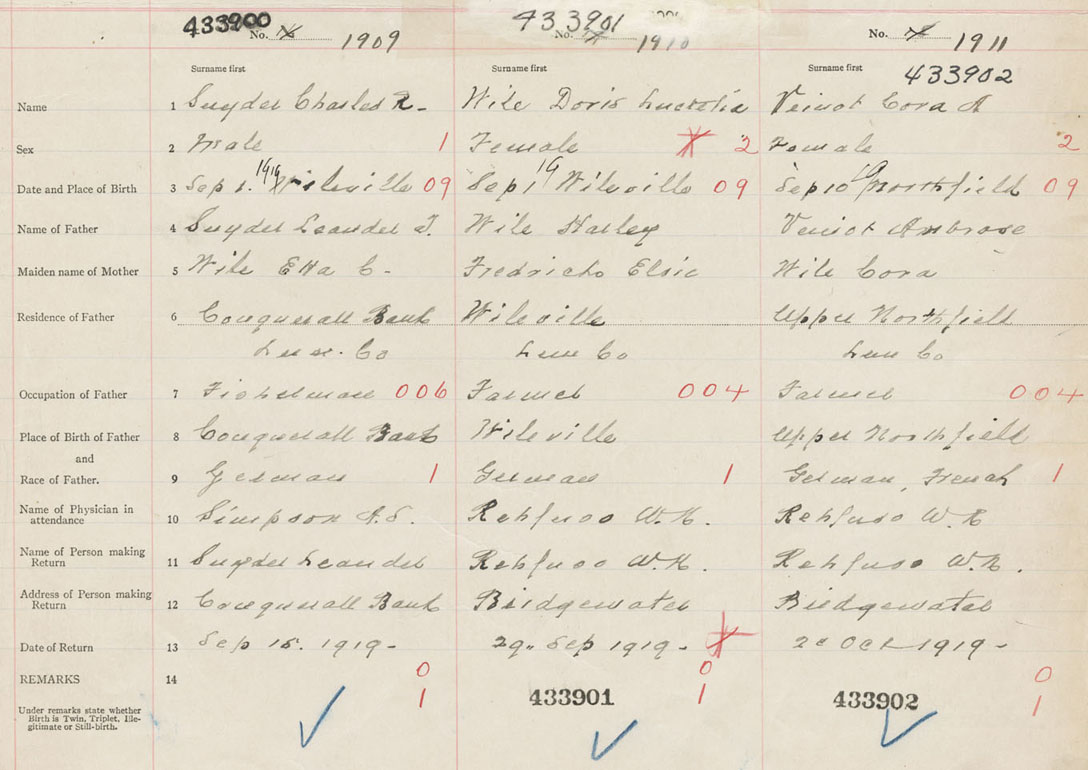 433900 No. 1909 433901 No. 1910 No. 1911
Surname first Surname first Surname first 433902
Name 1 Snyder Charles R- Wile Doris Lucretia Veinot Cora A
Sex 2 Male 1 Female 2 Female 2
Date and Place of Birth 3 Sep 1. 1919 Wileville 09 Sep 1 19 Wileville 09 Sep 10 19 Northfield 09
Name of Father 4 Snyder Leander T. Wile Harley Veinot Ambrose
Maiden name of Mother 5 Wile Etta C- Fredricks Elsie Wile Cora
Residence of Father 6 Conquerall Bank Wileville Upper Northfield
Lun. Co Lun Co Lun Co
Occupation of Father 7 Fisherman 006 Farmer 004 Farmer 004
Place of Birth of Father 8 Conquerall Bank Wileville Upper Northfield
and
Race of Father. 9 German 1 German 1 German, French 1
Name of Physician in
attendance 10 Simpson A.S. Rehfuso W.H. Rehfuso W.H
Name of Person making
Return 11 Snyder Leander Rehfuso W.H. Rehfuso W.H.
Address of Person making
Return 12 Conquerall Bank Bridgewater Bridgewater
Date of Return 13 Sep 15. 1919- 29" Sep 1919- Oct 1919-
REMARKS 14 0 0 0
1 433901 1 433902 1
Under remarks state whether
Birth is Twin, Triplet, Ille-
gitimate or Still-birth.